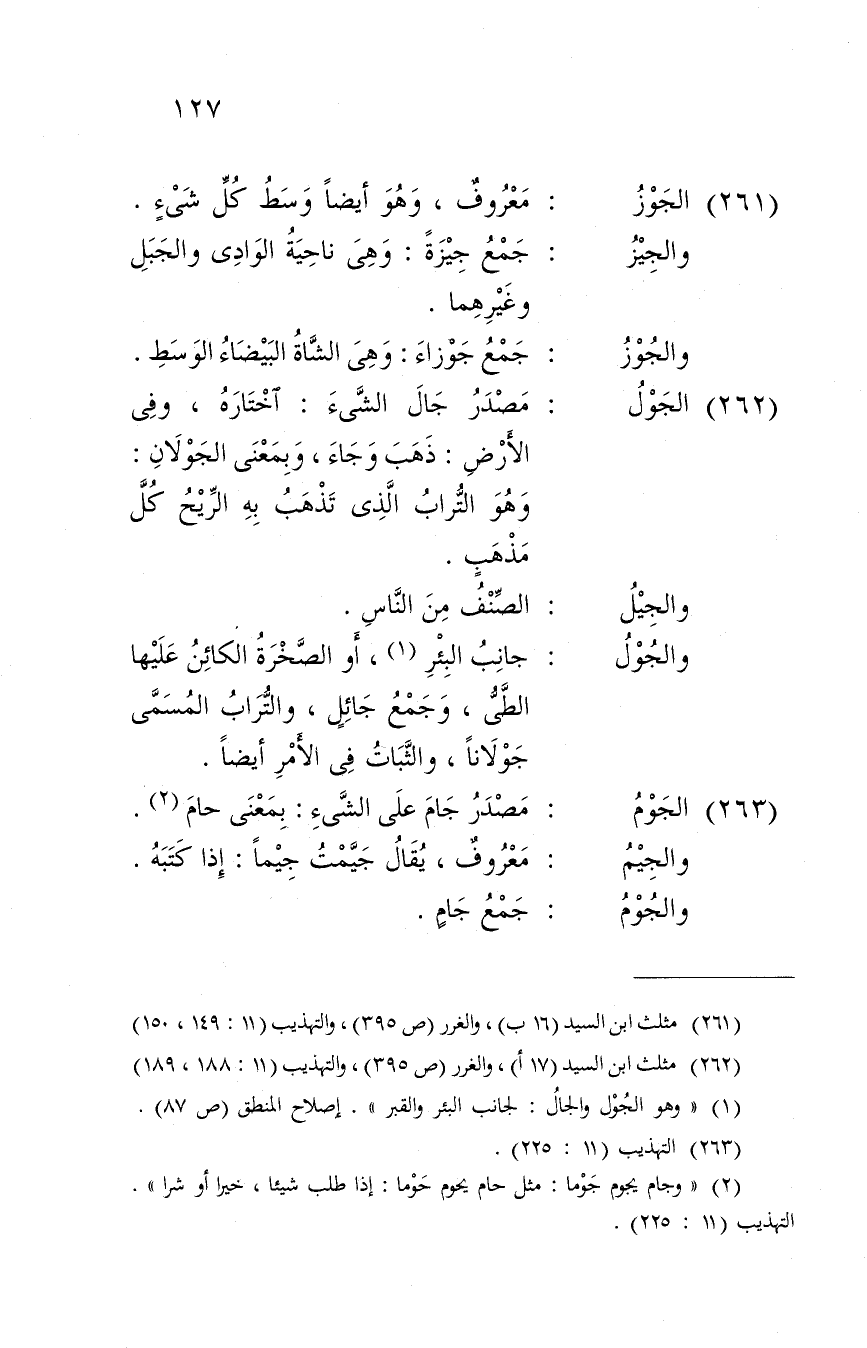 ١٢٧
(٢٦١) الجَوْزُ : مَعْرُوفٌ ، وَهُوَ أيضاً وَسَطُ كُلِّ شَىْءٍ .
والجِيْزُ : جَمْعُ جِيْزَةً : وَهِىَ ناحِيَةُ الوَادِى والجَبَلِ
وغَيْرِهِما .
والجُوْزُ : جَمْعُ جَوْزاءَ : وَهِىَ الشَّاةُ البَيْضَاءُ الوَسَطِ .
(٢٦٢) الجَوْلُ : مَصْدَرُ جَالَ الشَّىءَ : ٱخْتَارَهُ ، وفِى
الأَرْضِ : ذَهَبَ وَجَاءَ ، وَبِمَعْنَى الجَوْلَانِ :
وَهُوَ التُّرابُ الَّذِى تَذْهَبُ بِهِ الرِّيْحُ كُلَّ
مَذْهَبٍ .
والجِيْلُ : الصِّنْفُ مِنَ النَّاسِ .
والجُوْلُ : جانِبُ البِئْرِ (١) ، أَو الصَّخْرَةُ الكائِنُ عَلَيْها
الطَّىُّ ، وَجَمْعُ جَائِلٍ ، والتُّرَابُ المُسَمَّى
جَوْلَاناً ، والثَّبَاتُ فِى الأَمْرِ أيضاً .
(٢٦٣) الجَوْمُ : مَصْدَرُ جَامَ علَى الشَّىءِ : بِمَعْنَى حامَ (٢) .
والجِيْمُ : مَعْرُوفٌ ، يُقَالُ جَيَّمْتُ جِيْماً : إِذا كَتَبَهُ .
والجُوْمُ : جَمْعُ جَامٍ .
(٢٦١) مثلث ابن السيد (١٦ ب) ، والغرر (ص ٣٩٥) ، والتهذيب (١١ : ١٤٩ ، ١٥٠)
(٢٦٢) مثلث ابن السيد (١٧ أ) ، والغرر (ص ٣٩٥) ، والتهذيب (١١ : ١٨٨ ، ١٨٩)
(١) « وهو الجُوْل والجالُ : لجانب البئر والقبر » . إصلاح المنطق (ص ٨٧) .
(٢٦٣) التهذيب (١١ : ٢٢٥) .
(٢) « وجام يجوم جَوْما : مثل حام يحوم حَوْما : إذا طلب شيئا ، خيرا أو شرا » .
التهذيب (١١ : ٢٢٥) .